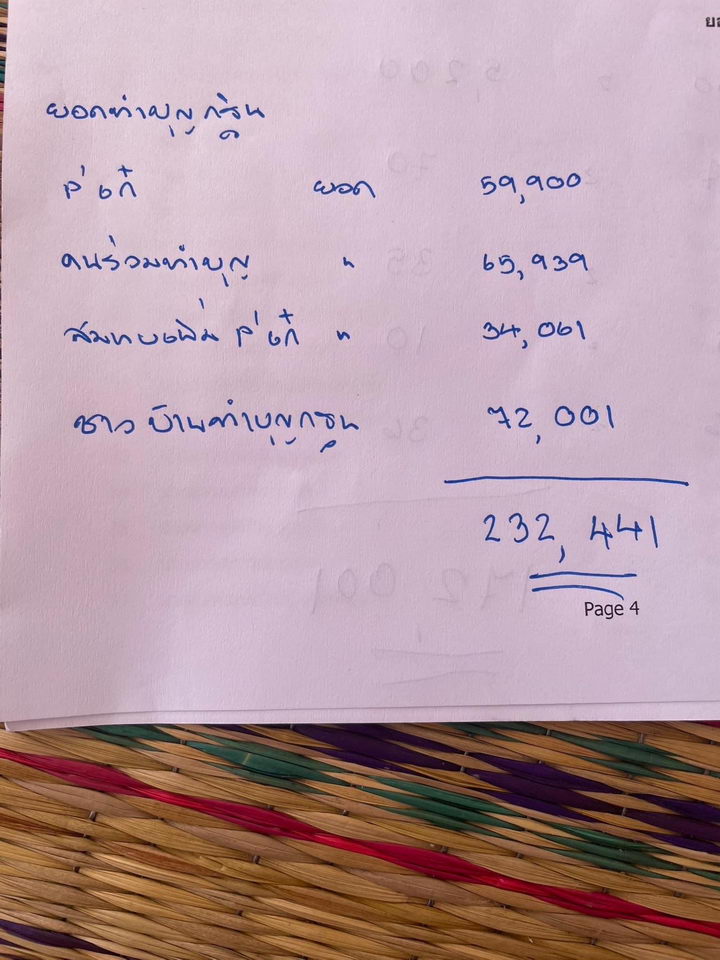 ยอ
ยอดทำบุญกฐิน
P'เก๋ ยอด 59,900
คนร่วมทำบุญ " 65,939
สมทบเพิ่ม P'เก๋ " 34,061
ชาวบ้านทำบุญกฐิน 72,001
232,441
Page 4